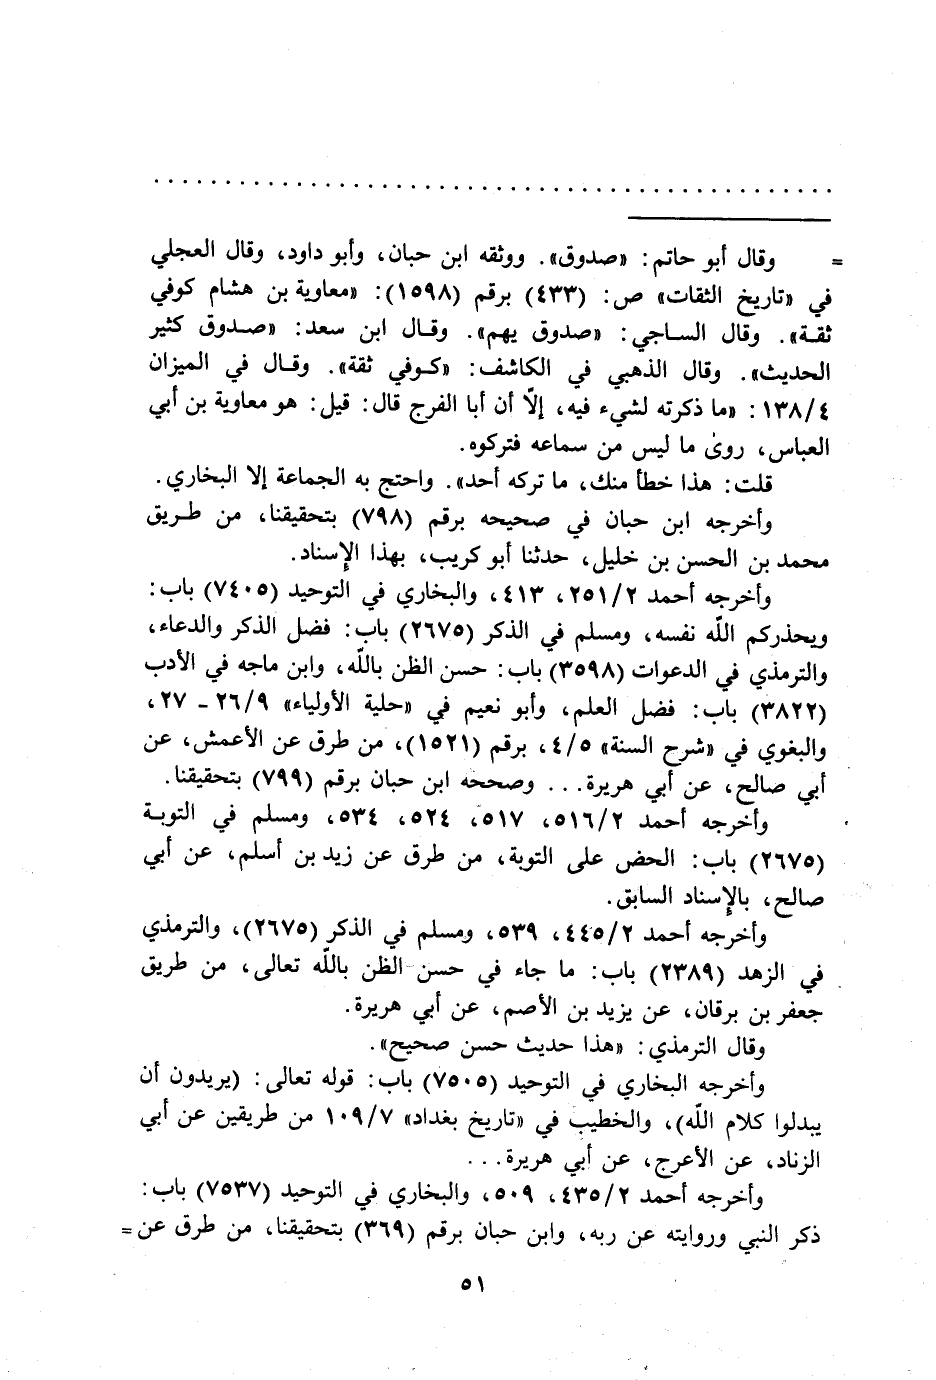 = وقال أبو حاتم: «صدوق». ووثقه ابن حبان، وأبو داود، وقال العجلي
في «تاريخ الثقات» ص: (٤٣٣) برقم (١٥٩٨): «معاوية بن هشام كوفي
ثقة». وقال الساجي: «صدوق يهم». وقال ابن سعد: «صدوق كثير
الحديث». وقال الذهبي في الكاشف: «كوفي ثقة». وقال في الميزان
١٣٨/٤: «ما ذكرته لشيء فيه، إلّا أن أبا الفرج قال: قيل: هو معاوية بن أبي
العباس، روىٰ ما ليس من سماعه فتركوه.
قلت: هذا خطأ منك، ما تركه أحد». واحتج به الجماعة إلا البخاري.
وأخرجه ابن حبان في صحيحه برقم (٧٩٨) بتحقيقنا، من طريق
محمد بن الحسن بن خليل، حدثنا أبو كريب، بهذا الإسناد.
وأخرجه أحمد ٢٥١/٢، ٤١٣، والبخاري في التوحيد (٧٤٠٥) باب:
ويحذركم اللّه نفسه، ومسلم في الذكر (٢٦٧٥) باب: فضل الذكر والدعاء،
والترمذي في الدعوات (٣٥٩٨) باب: حسن الظن باللّه، وابن ماجه في الأدب
(٣٨٢٢) باب: فضل العلم، وأبو نعيم في «حلية الأولياء» ٢٦/٩ - ٢٧،
والبغوي في «شرح السنة» ٤/٥، برقم (١٥٢١)، من طرق عن الأعمش، عن
أبي صالح، عن أبي هريرة... وصححه ابن حبان برقم (٧٩٩) بتحقيقنا.
وأخرجه أحمد ٥١٦/٢، ٥١٧، ٥٢٤، ٥٣٤، ومسلم في التوبة
(٢٦٧٥) باب: الحض على التوبة، من طرق عن زيد بن أسلم، عن أبي
صالح، بالإسناد السابق.
وأخرجه أحمد ٤٤٥/٢، ٥٣٩، ومسلم في الذكر (٢٦٧٥)، والترمذي
في الزهد (٢٣٨٩) باب: ما جاء في حسن الظن باللّه تعالى، من طريق
جعفر بن برقان، عن يزيد بن الأصم، عن أبي هريرة.
وقال الترمذي: «هذا حديث حسن صحيح».
وأخرجه البخاري في التوحيد (٧٥٠٥) باب: قوله تعالى: (يريدون أن
يبدلوا كلام اللّه)، والخطيب في «تاريخ بغداد» ١٠٩/٧ من طريقين عن أبي
الزناد، عن الأعرج، عن أبي هريرة...
وأخرجه أحمد ٤٣٥/٢، ٥٠٩، والبخاري في التوحيد (٧٥٣٧) باب:
ذكر النبي وروايته عن ربه، وابن حبان برقم (٣٦٩) بتحقيقنا، من طرق عن =
٥١